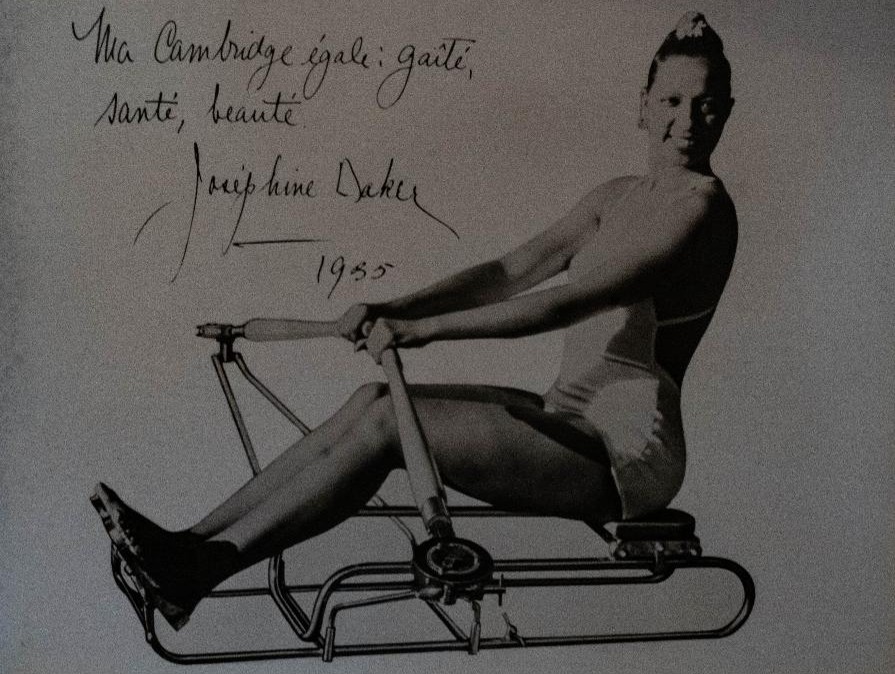 Ma Cambridge égale: gaîté,
santé, beauté.
Joséphine Baker
1935